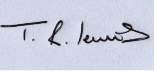 T. R. Lewis